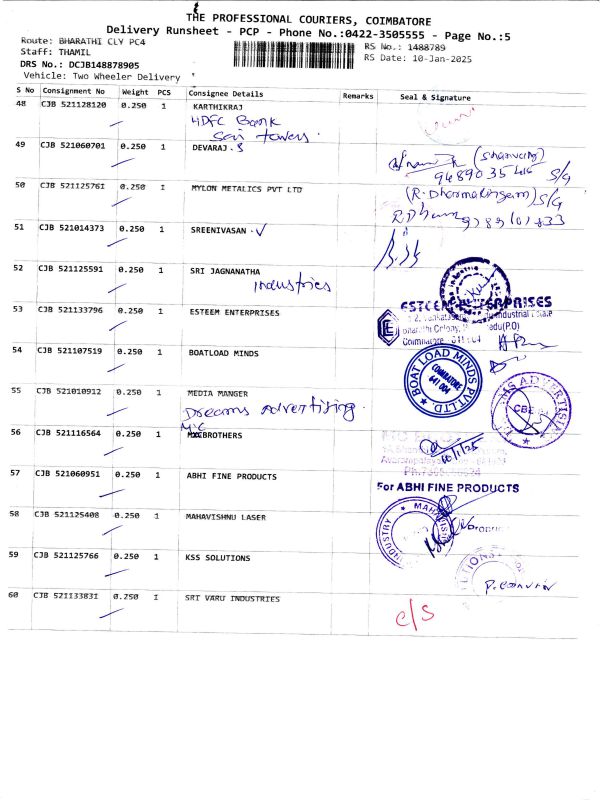 THE PROFESSIONAL COURIERS, COIMBATORE
Delivery Runsheet - PCP - Phone No.:0422-3505555 - Page No.:5
Route: BHARATHI CLY PC4
Staff: THAMIL
DRS No.: DCJB148878905
Vehicle: Two Wheeler Delivery
RS No.: 1488789
RS Date: 10-Jan-2025
S No Consignment No Weight PCS Consignee Details Remarks Seal & Signature
48 CJB 521128120 0.250 1 KARTHIKRAJ
HDFC Bank
Sai towers.
49 CJB 521060701 0.250 1 DEVARAJ.S
(Shanvang)
9489035445 S/G
50 CJB 521125761 0.250 1 MYLON METALICS PVT LTD
(R.Dharmalingam) S/G
R.Dharma
51 CJB 521014373 0.250 1 SREENIVASAN.V
52 CJB 521125591 0.250 1 SRI JAGNANATHA
industries
53 CJB 521133796 0.250 1 ESTEEM ENTERPRISES
ESTEEM ENTERPRISES
Industrial Estate
Bharathi Colony,
Coimbatore
54 CJB 521107519 0.250 1 BOATLOAD MINDS
BOAT LOAD MINDS PVT LTD
COIMBATORE
641 004
55 CJB 521010912 0.250 1 MEDIA MANGER
Dreams Advertising.
MS ADVERTISING
CBE
56 CJB 521116564 0.250 1 MXBROTHERS
10/1/25
57 CJB 521060951 0.250 1 ABHI FINE PRODUCTS
For ABHI FINE PRODUCTS
58 CJB 521125408 0.250 1 MAHAVISHNU LASER
INDUSTRY
59 CJB 521125766 0.250 1 KSS SOLUTIONS
60 CJB 521133831 0.250 1 SRI VARU INDUSTRIES
c/s